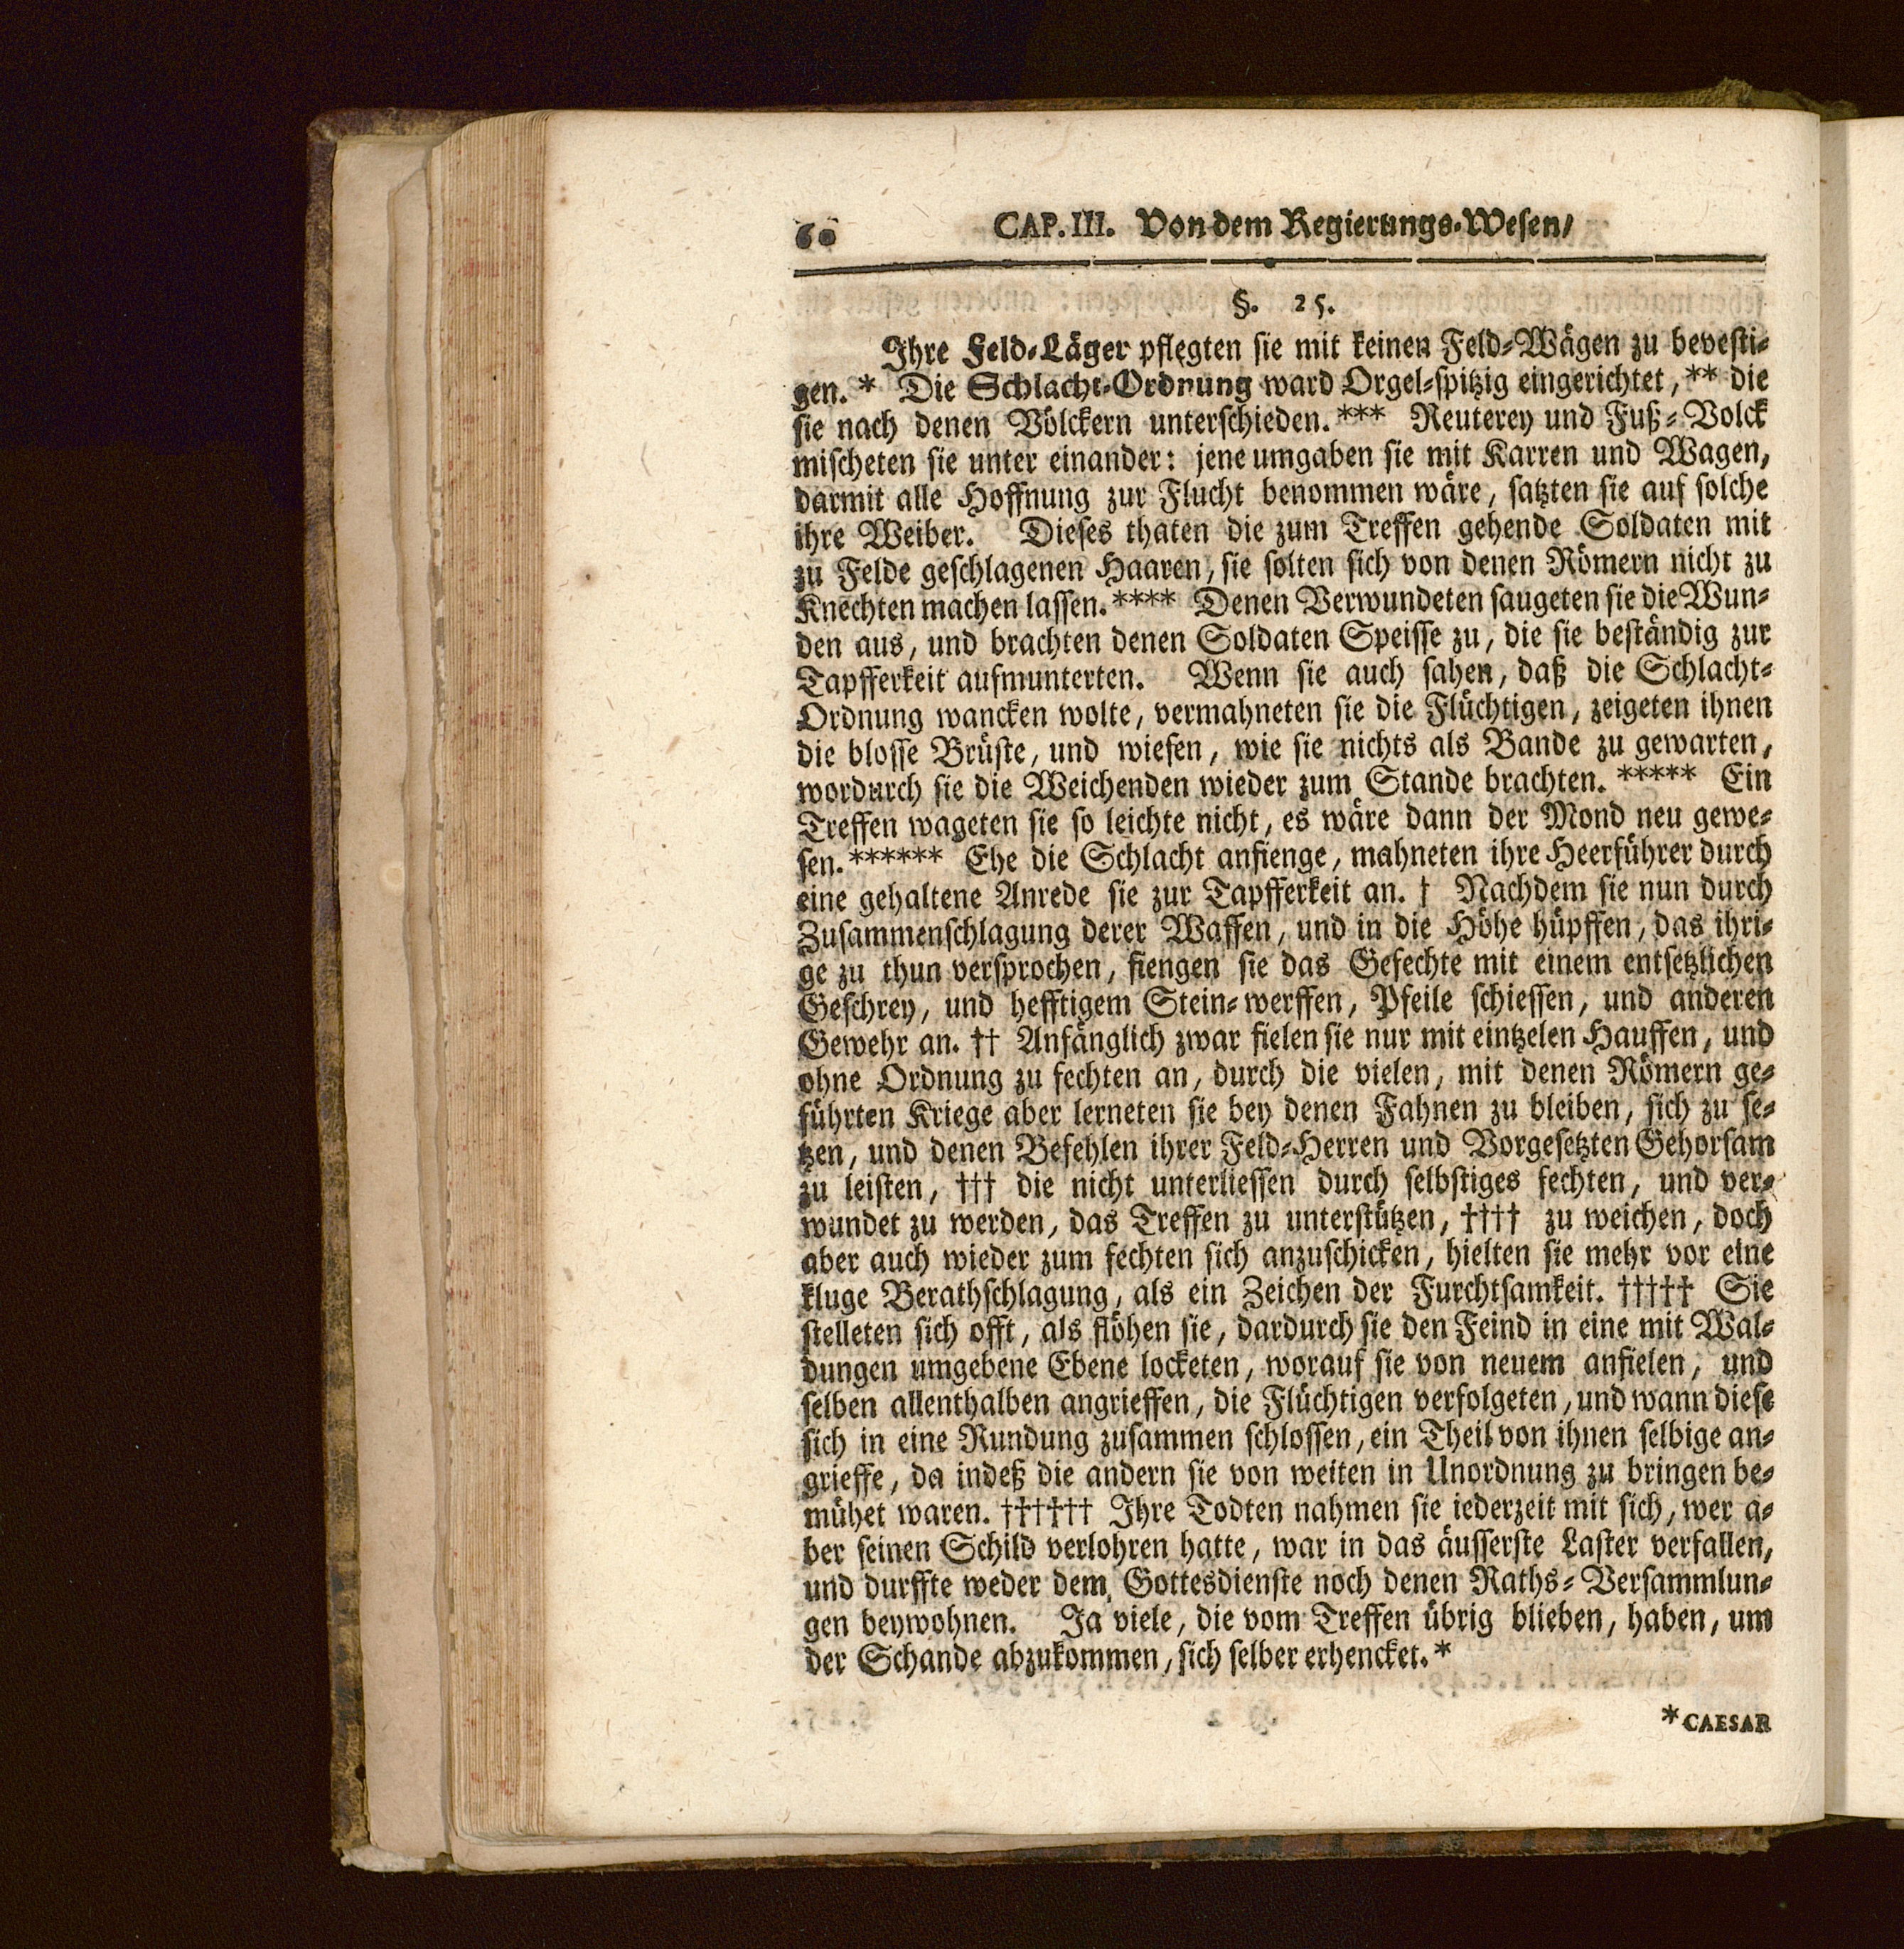 60 CAP. III. Von dem Regierungs-Wesen/
§. 25.
Ihre Feld-Läger pflegten sie mit keinen Feld-Wägen zu bevesti-
gen. * Die Schlacht-Ordnung ward Orgel-spitzig eingerichtet, ** die
sie nach denen Völckern unterschieden. *** Reuterey und Fuß-Volck
mischeten sie unter einander: jene umgaben sie mit Karren und Wagen,
darmit alle Hoffnung zur Flucht benommen wäre, satzten sie auf solche
ihre Weiber. Dieses thaten die zum Treffen gehende Soldaten mit
zu Felde geschlagenen Haaren, sie solten sich von denen Römern nicht zu
Knechten machen lassen. **** Denen Verwundeten saugeten sie die Wun-
den aus, und brachten denen Soldaten Speisse zu, die sie beständig zur
Tapfferkeit aufmunterten. Wenn sie auch sahen, daß die Schlacht-
Ordnung wancken wolte, vermahneten sie die Flüchtigen, zeigeten ihnen
die blosse Brüste, und wiesen, wie sie nichts als Bande zu gewarten,
wordurch sie die Weichenden wieder zum Stande brachten. ***** Ein
Treffen wageten sie so leichte nicht, es wäre dann der Mond neu gewe-
sen. ****** Ehe die Schlacht anfienge, mahneten ihre Heerführer durch
eine gehaltene Anrede sie zur Tapfferkeit an. † Nachdem sie nun durch
Zusammenschlagung derer Waffen, und in die Höhe hüpffen, das ihri-
ge zu thun versprochen, fiengen sie das Gefechte mit einem entsetzlichen
Geschrey, und hefftigem Stein-werffen, Pfeile schiessen, und anderen
Gewehr an. †† Anfänglich zwar fielen sie nur mit eintzelen Hauffen, und
ohne Ordnung zu fechten an, durch die vielen, mit denen Römern ge-
führten Kriege aber lerneten sie bey denen Fahnen zu bleiben, sich zu se-
tzen, und denen Befehlen ihrer Feld-Herren und Vorgesetzten Gehorsam
zu leisten, ††† die nicht unterliessen durch selbstiges fechten, und ver-
wundet zu werden, das Treffen zu unterstützen, †††† zu weichen, doch
aber auch wieder zum fechten sich anzuschicken, hielten sie mehr vor eine
kluge Berathschlagung, als ein Zeichen der Furchtsamkeit. ††††† Sie
stelleten sich offt, als flöhen sie, dardurch sie den Feind in eine mit Wal-
dungen umgebene Ebene locketen, worauf sie von neuem anfielen, und
selben allenthalben angrieffen, die Flüchtigen verfolgeten, und wann diese
sich in eine Rundung zusammen schlossen, ein Theil von ihnen selbige an-
grieffe, da indeß die andern sie von weiten in Unordnung zu bringen be-
mühet waren. †††††† Ihre Todten nahmen sie iederzeit mit sich, wer a-
ber seinen Schild verlohren hatte, war in das äusserste Laster verfallen,
und durffte weder dem Gottesdienste noch denen Raths-Versammlun-
gen beywohnen. Ja viele, die vom Treffen übrig blieben, haben, um
der Schande abzukommen, sich selber erhencket. *
* CAESAR